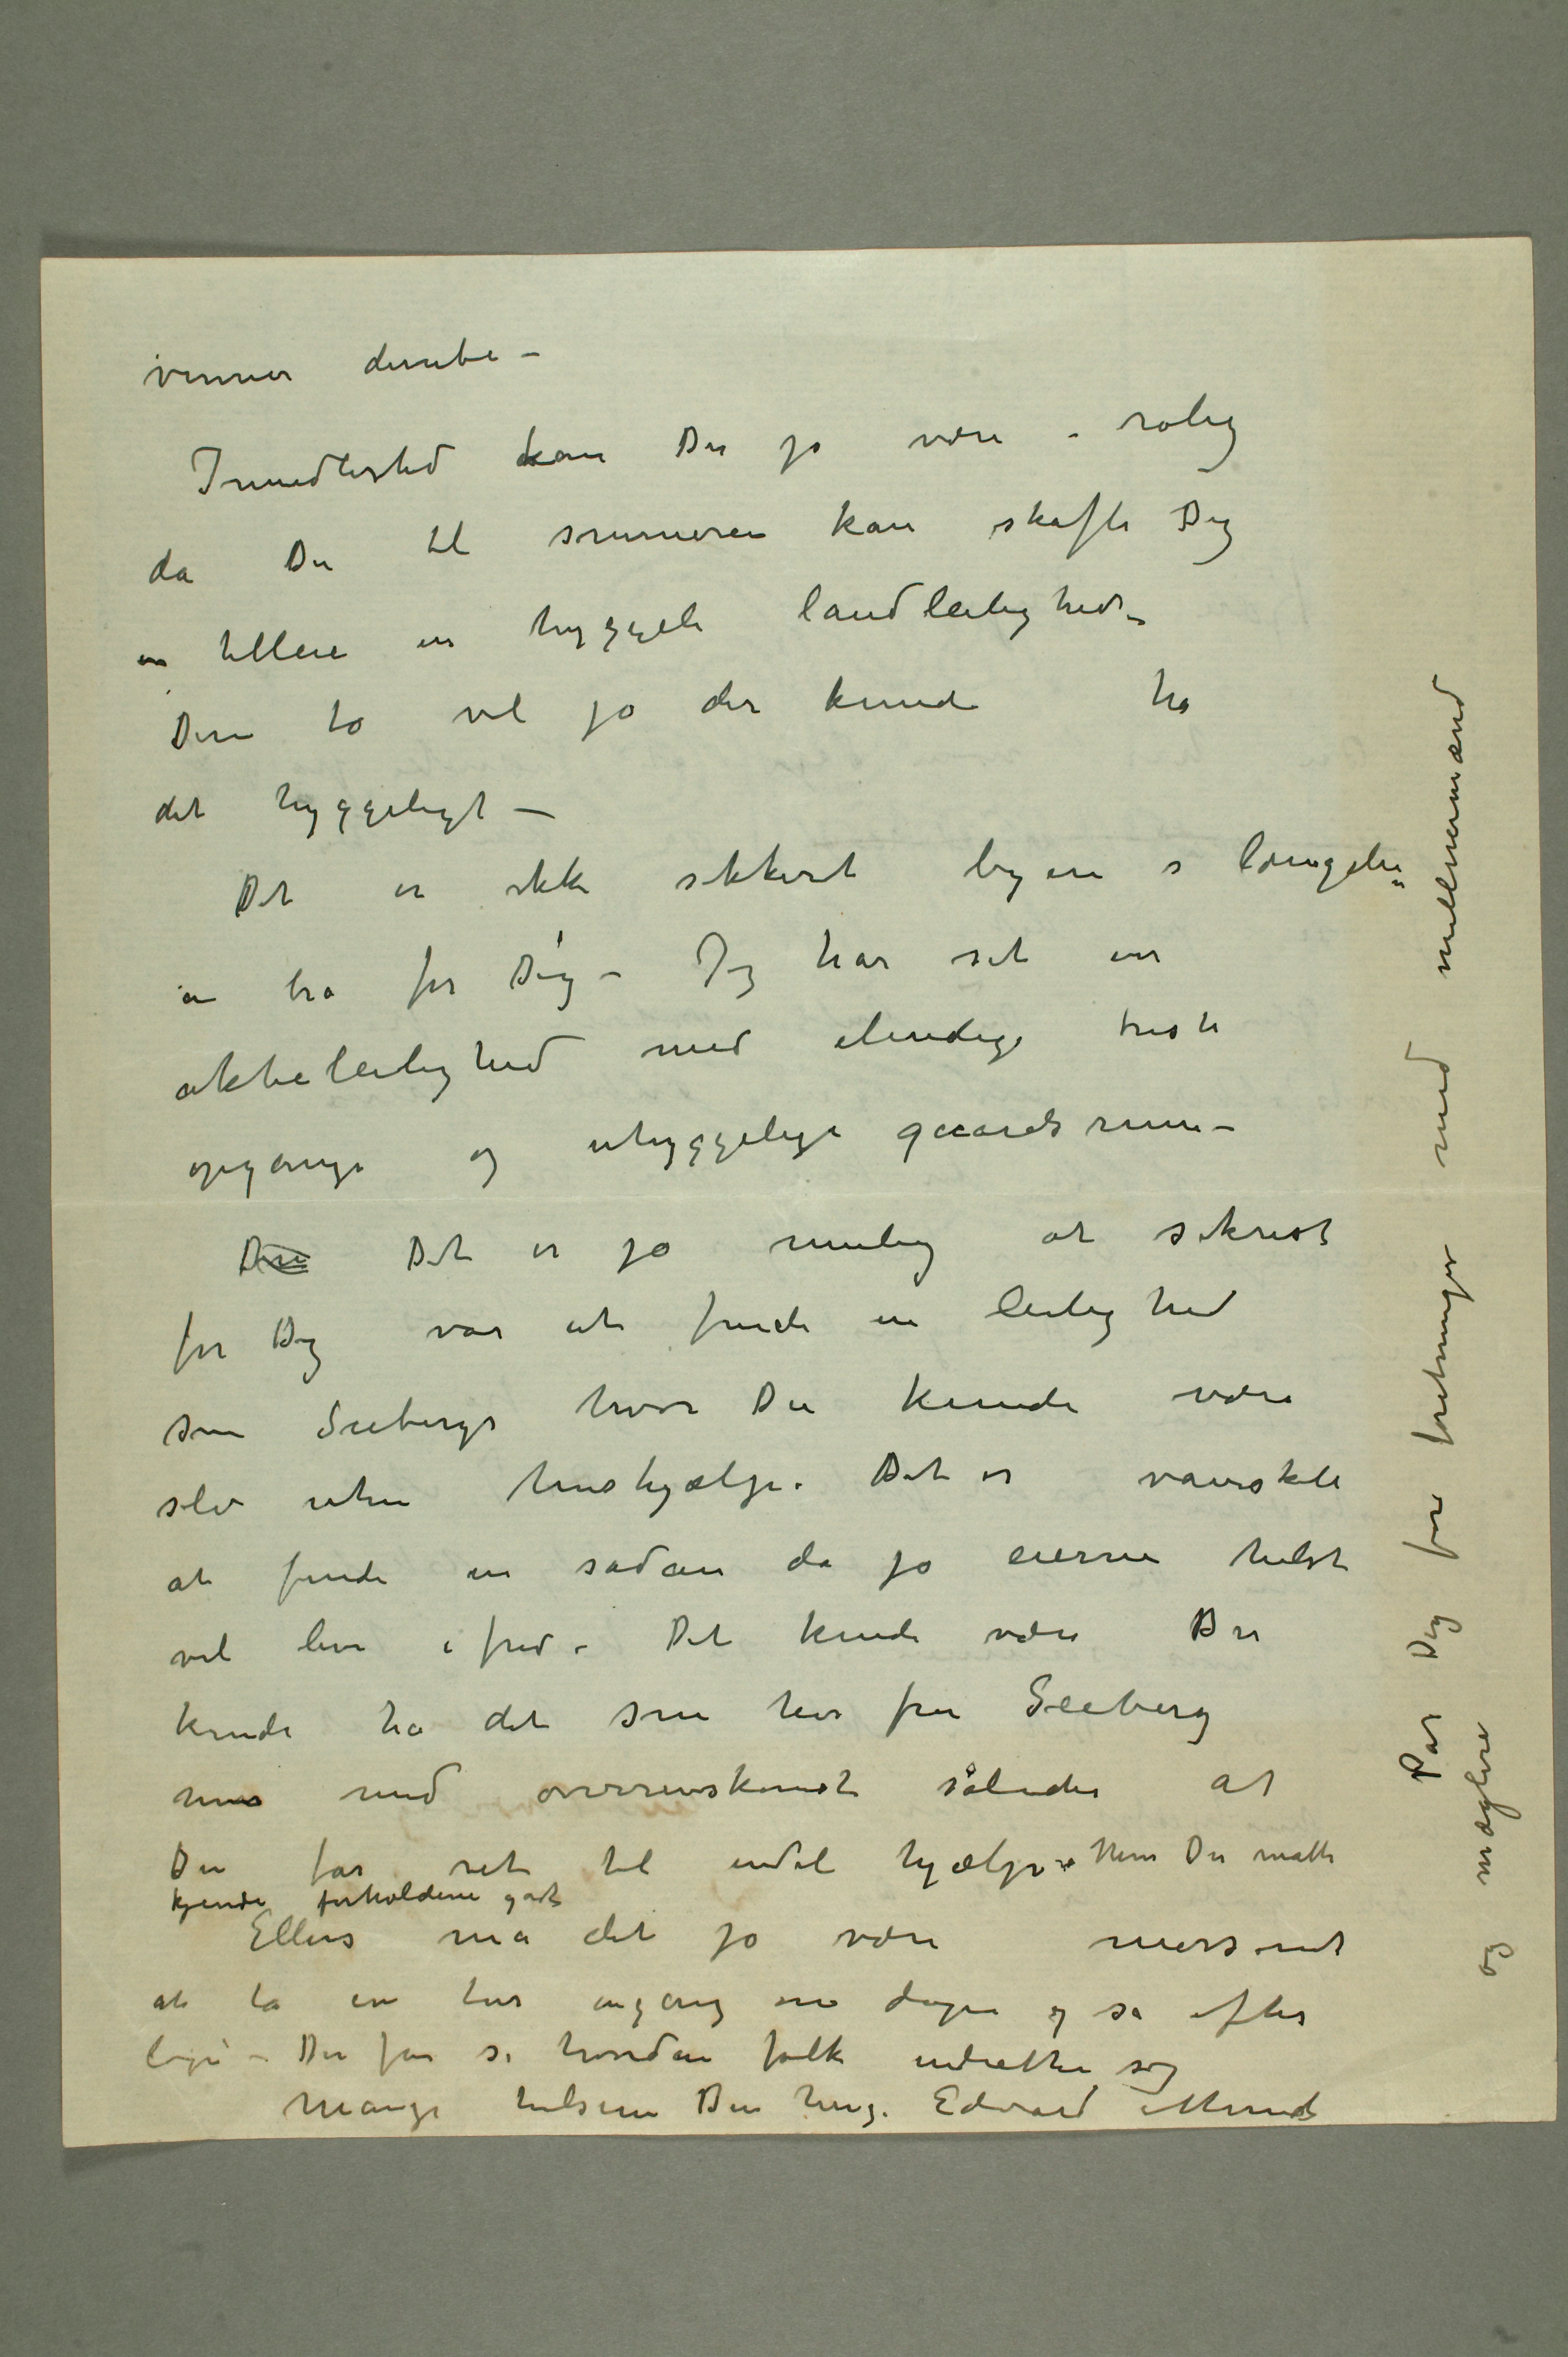 venner derute –
Imidlertid kan Du jo være rolig
da Du til sommeren kan skaffe Dig
en billeie en hyggeli landleilighed –
Dere to vil jo der kunde ha
det hyggeligt –
Det er ikke sikkert byen i længden
er bra for Dig – Jeg har set en
leilighed med elendige triste
opgange og uhyggelige gaardsrum –
Det er jo mulig at sikrest
for Dig var at finde en leilighed
som Seebergs hvor Du kunde være
selv uten hushjælp. Det er vanskeli
at finde en sådan da jo eierne helst
vil leve i fred – Det kunde være Du
kunde ha det som hos fru Seeberg
men med overenskomst således at
Du får ret til endel hjælp – Men Du måtte
kjende forholdene godt
Ellers må det jo være morsomt
at ta en tur engang om dagen og se efter
leje – Du får se hvordan folk indretter sig
Mange hilsener Din heng. Edvard Munch
Pas Dig for foretninger med mellemmænd
og mæglere